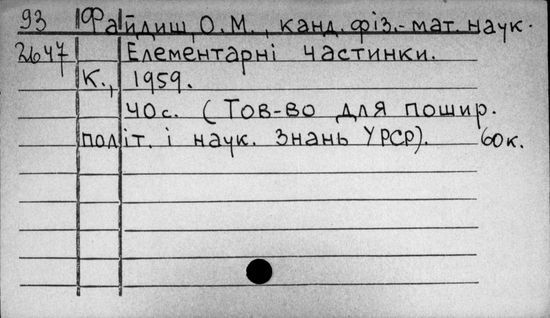 93 Файдиш, О.М., канд. фіз.-мат. наук.
2647 Елементарні частинки.
К., 1959.
40с. (Тов-во для пошир.
політ. і наук. знань УРСР). 60к.